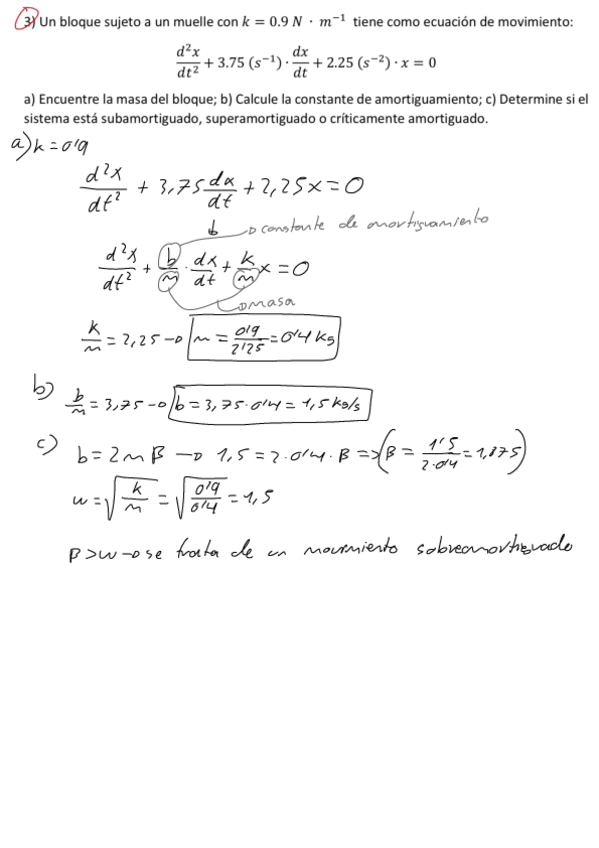 3) Un bloque sujeto a un muelle con k = 0.9 N · m⁻¹ tiene como ecuación de movimiento:
d²x/dt² + 3.75 (s⁻¹) · dx/dt + 2.25 (s⁻²) · x = 0
a) Encuentre la masa del bloque; b) Calcule la constante de amortiguamiento; c) Determine si el
sistema está subamortiguado, superamortiguado o críticamente amortiguado.
a) k = 0'9
d²x/dt² + 3,75 dx/dt + 2,25x = 0
↓ → constante de amortiguamiento
d²x/dt² + b/m · dx/dt + k/m x = 0
→ masa
k/m = 2,25 → m = 0'9/2'25 = 0'4 kg
b) b/m = 3,75 → b = 3,75 · 0'4 = 1,5 kg/s
c) b = 2mβ → 1,5 = 2 · 0'4 · β => (β = 1'5/2·0'4 = 1,875)
w = √(k/m) = √(0'9/0'4) = 1,5
β > w → se trata de un movimiento sobreamortiguado